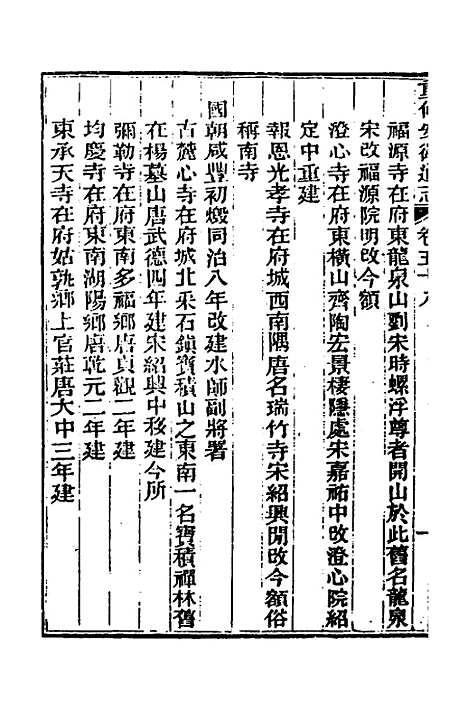 重修安徽通志 卷五十八 一
福源寺在府東龍泉山劉宋時螺浮尊者開山於此舊名龍泉
宋改福源院明改今額
澄心寺在府東橫山齊陶宏景棲隱處宋嘉祐中改澄心院紹
定中重建
報恩光孝寺在府城西南隅唐名瑞竹寺宋紹興閒改今額俗
稱南寺
國朝咸豐初燬同治八年改建水師副將署
古麓心寺在府城北采石鎮寶積山之東南一名寶積禪林舊
在楊墓山唐武德四年建宋紹興中移建今所
彌勒寺在府東南多福鄉唐貞觀二年建
均慶寺在府東南湖陽鄉唐乾元二年建
東承天寺在府姑孰鄉上官莊唐大中三年建